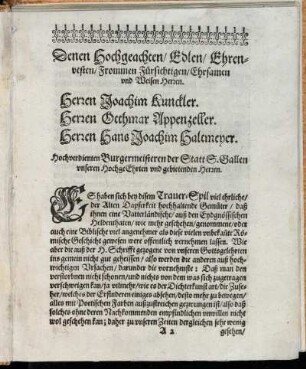 Denen Hochgeachten / Edlen / Ehren-
vesten / Frommen Fürsichtigen / Ehrsamen
vnd Weisen Herren.
Herren Joachim Kunckler.
Herren Othmar Appenzeller.
Herren Hans Joachim Haltmeyer.
Hochverdienten Burgermeisteren der Statt S. Gallen
vnseren HochgeEhrten vnd gebietenden Herren.
ES haben sich bey disem Trauer-Spil viel ehrliche /
der Alten Dapferkeit hochhaltende Gemüter / daß
ihnen eine Vatterländische / auß den Eydgnössischen
Heldenthaten / wie mehr geschehen / genommene / oder
euch eine Biblische viel angenehmer als diese vielen vnbekante Rö-
mische Geschicht gewesen were offentlich vernehmen lassen. Wie
aber die auß der H. Schrifft gezogene von vnseren Gottsgelehrten
ins gemein nicht gut geheissen / also werden die anderen auß hoch-
wichtigen Vrsachen / darunder die vornemste: Daß man den
verstorbenen nicht schonen / vnd nichts von dem was sich zugetragen
verschweigen kan / ja vilmehr / wie es der Dichterkunst art / die Zuse-
her / welches der Erfinderen einiges absehen / desto mehr zu bewegen /
alles mit Poetischen Farben außzustreichen gezwungen ist / also daß
solches ohne deren Nachkommenden empfindlichen vnwillen nicht
wol geschehen kan; daher zu vnseren Zeiten dergleichen sehr wenig
A 2
gesehen /